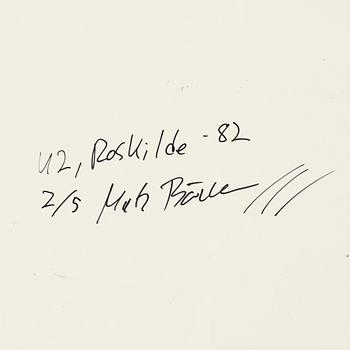 U2, Roskilde - 82
2/5 Mats Bäcker